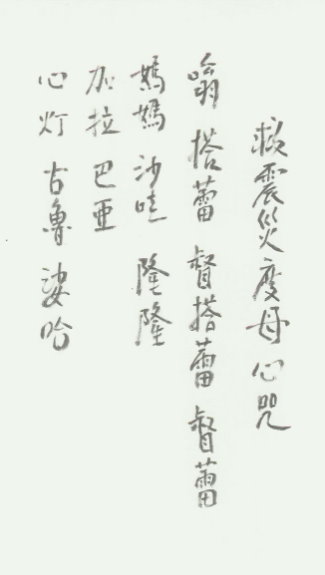 救震災度母心咒
嗡 搭蕾 督搭蕾 督蕾
媽媽 沙哇 隆隆
加拉 巴亚
心灯 古魯 娑哈